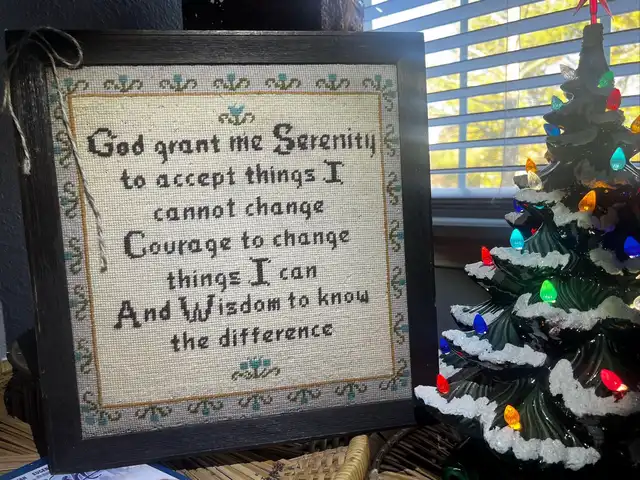 God grant me Serenity
to accept things I
cannot change
Courage to change
things I can
And Wisdom to know
the difference